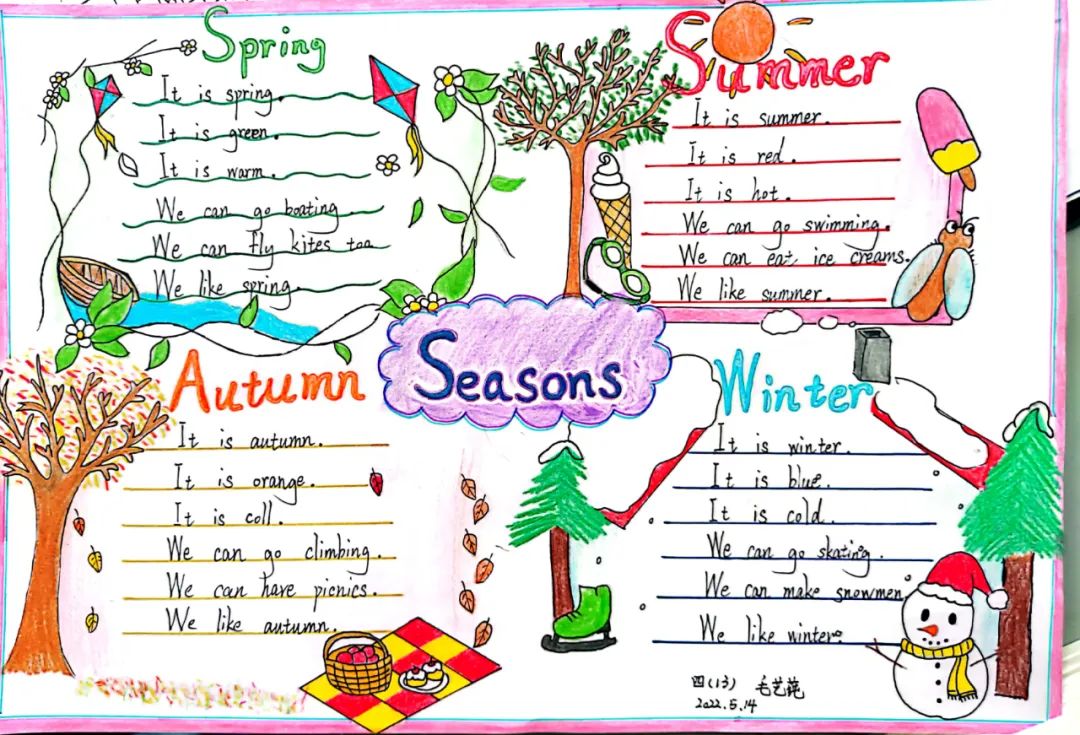 Spring
It is spring.
It is green.
It is warm.
We can go boating.
We can fly kites too
We like spring.
Summer
It is summer.
It is red.
It is hot.
We can go swimming.
We can eat ice creams.
We like summer.
Seasons
Autumn
It is autumn.
It is orange.
It is coll.
We can go climbing.
We can have picnics.
We like autumn.
Winter
It is winter.
It is blue.
It is cold.
We can go skating.
We can make snowmen.
We like winter.
四(13) 毛艺莼
2022.5.14